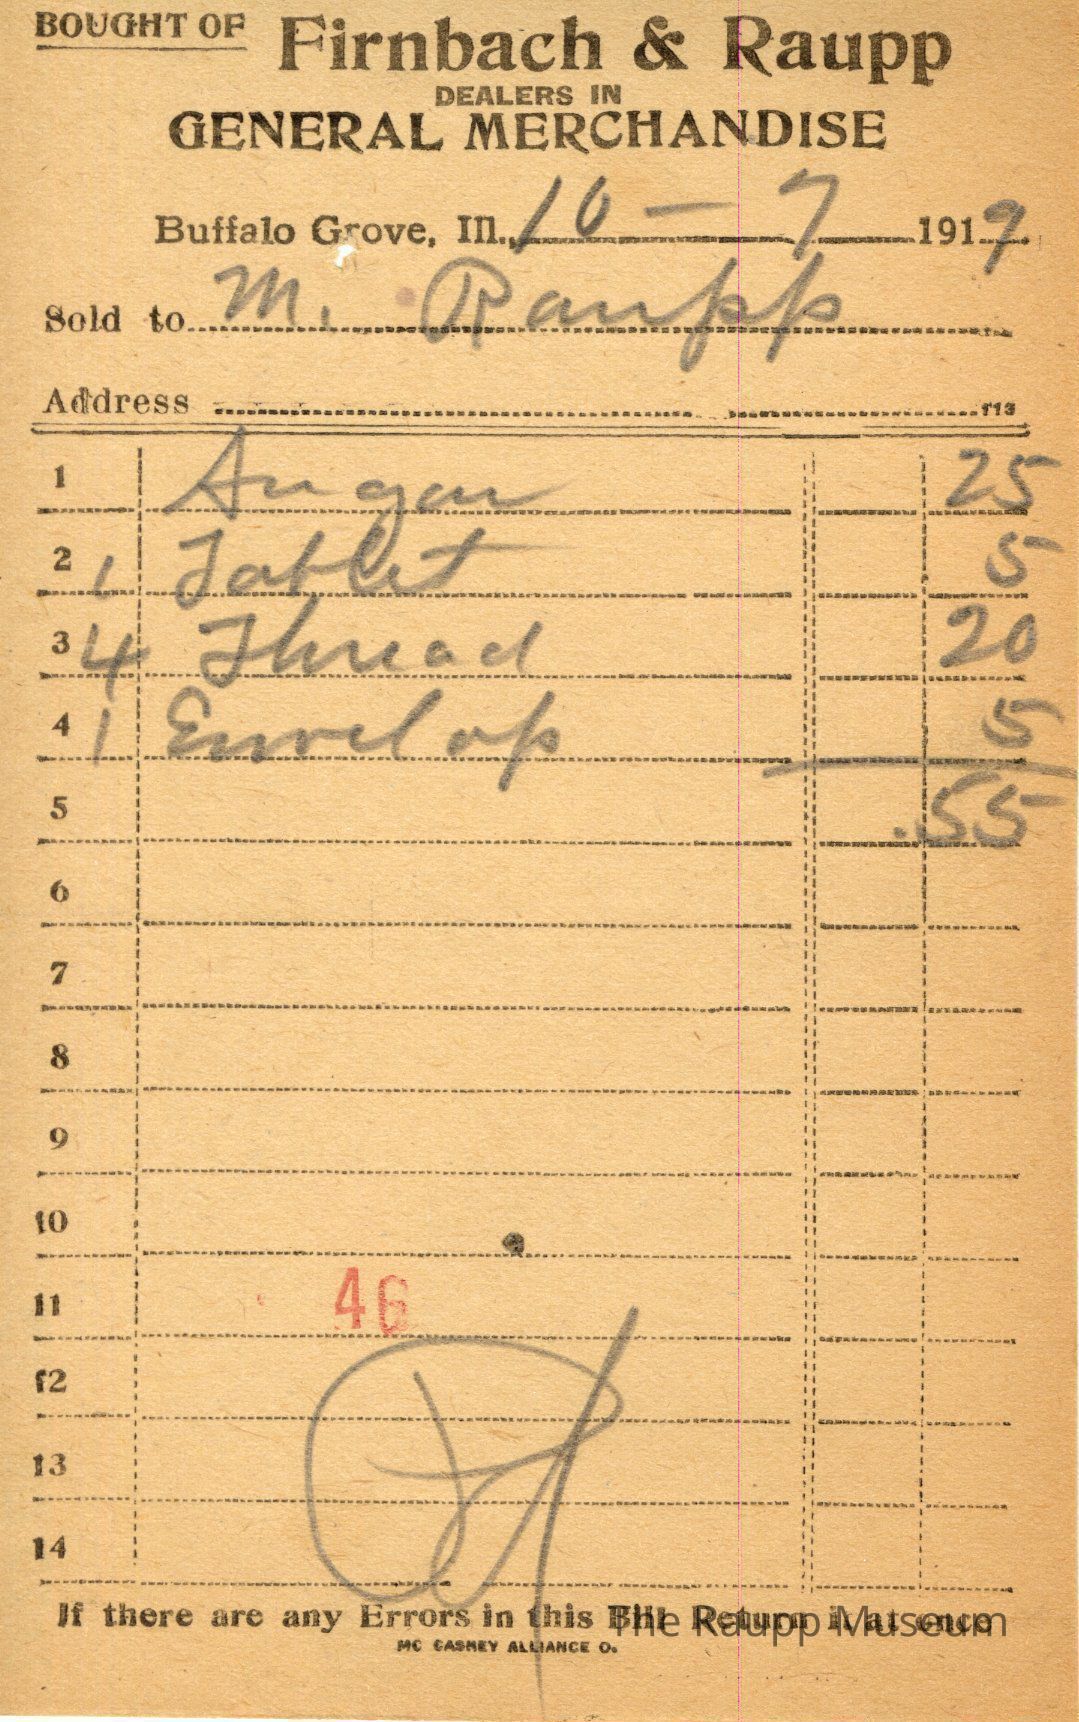 BOUGHT OF Firnbach & Raupp
DEALERS IN
GENERAL MERCHANDISE
Buffalo Grove, Ill., 10 - 7 1919.
Sold to M. Raupp
Address 113
1 Sugar 25
2 1 Tablet 5
3 4 Thread 20
4 1 Envelop 5
5 .55
6
7
8
9
10
11 46
12
13
14
If there are any Errors in this Bill Return it at once
The Raupp Museum
MC CASKEY ALLIANCE O.